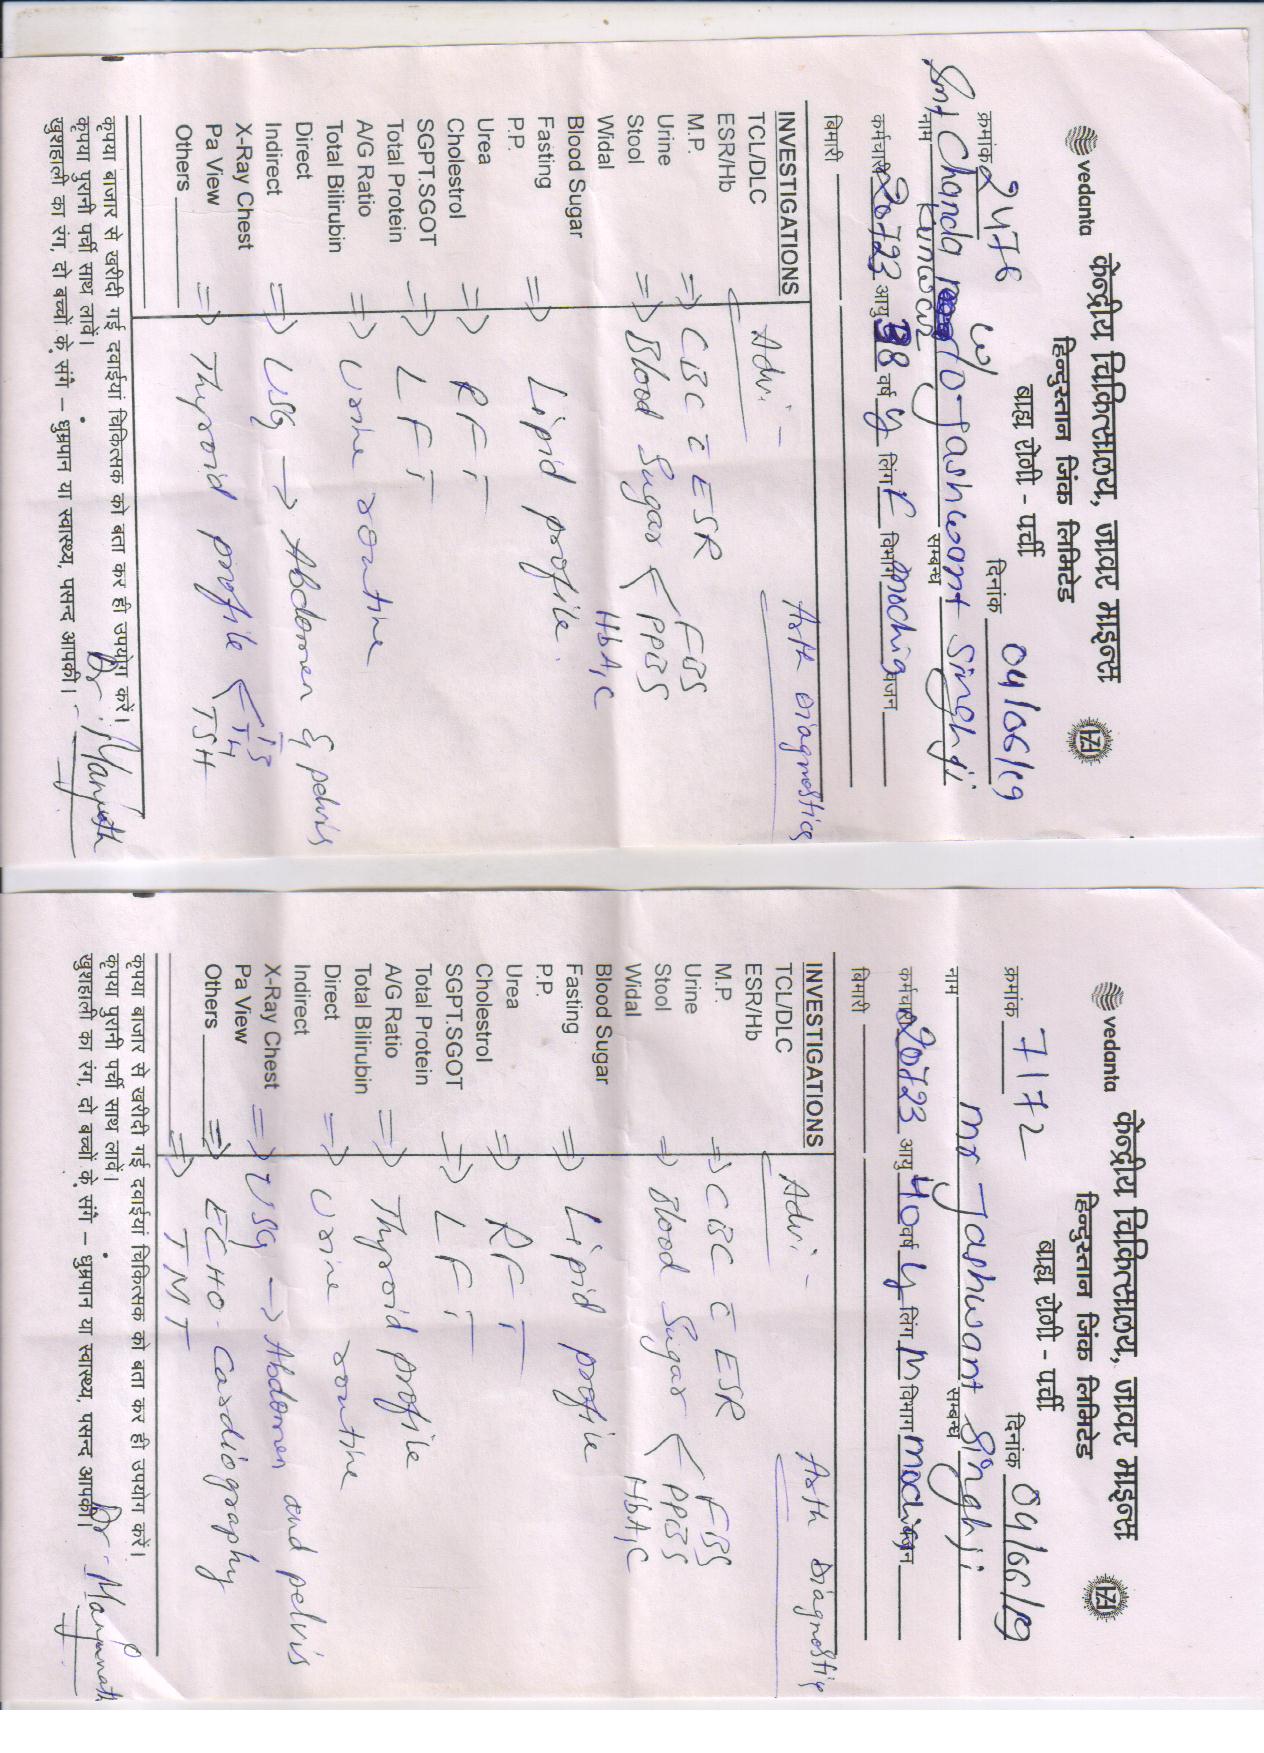 vedanta केन्द्रीय चिकित्सालय, जावर माइन्स
हिन्दुस्तान जिंक लिमिटेड
बाह्य रोगी - पर्ची
क्रमांक 2476 दिनांक 04/06/19
w/o Jashwant Singh ji
नाम Smt Chanda Kunwar सम्बन्ध
कर्मचारी 20723 आयु 38 वर्ष y लिंग F विभाग mochia वजन
बिमारी
INVESTIGATIONS
Arth Diagnostics
TCL/DLC
Adv:-
ESR/Hb
M.P. ⇒ CBC c̄ ESR
Urine
Stool ⇒ Blood Sugar < FBS
PPBS
Widal HbA1C
Blood Sugar
Fasting ⇒ Lipid profile.
P.P.
Urea
Cholestrol ⇒ RFT
SGPT.SGOT ⇒ LFT
Total Protein
A/G Ratio ⇒ Urine routine
Total Bilirubin
Direct
Indirect ⇒ USG → Abdomen & pelvis
X-Ray Chest
Pa View ⇒ Thyroid profile < T3
T4
TSH
Others
कृपया बाजार से खरीदी गई दवाईयां चिकित्सक को बता कर ही उपयोग करें।
कृपया पुरानी पर्ची साथ लावें।
खुशहाली का रंग, दो बच्चों के संग – धुम्रपान या स्वास्थ्य, पसन्द आपकी।
Dr. Manjunath
vedanta केन्द्रीय चिकित्सालय, जावर माइन्स
हिन्दुस्तान जिंक लिमिटेड
बाह्य रोगी - पर्ची
क्रमांक 7172 दिनांक 04/06/19
नाम Mr Jashwant Singh ji सम्बन्ध
कर्मचारी 20723 आयु 40 वर्ष y लिंग M विभाग mochia वजन
बिमारी
INVESTIGATIONS
Arth Diagnostic
TCL/DLC
Adv:-
ESR/Hb
M.P. ⇒ CBC c̄ ESR
Urine
Stool ⇒ Blood Sugar < FBS
PPBS
Widal HbA1C
Blood Sugar
Fasting ⇒ Lipid profile
P.P.
Urea ⇒ RFT
Cholestrol
SGPT.SGOT ⇒ LFT
Total Protein
A/G Ratio ⇒ Thyroid profile
Total Bilirubin
Direct ⇒ Urine routine
Indirect
X-Ray Chest ⇒ USG → Abdomen and pelvis
Pa View
Others ⇒ ECHO-Cardiography
⇒ TMT
कृपया बाजार से खरीदी गई दवाईयां चिकित्सक को बता कर ही उपयोग करें।
कृपया पुरानी पर्ची साथ लावें।
खुशहाली का रंग, दो बच्चों के संग – धुम्रपान या स्वास्थ्य, पसन्द आपकी।
Dr. Manjunath